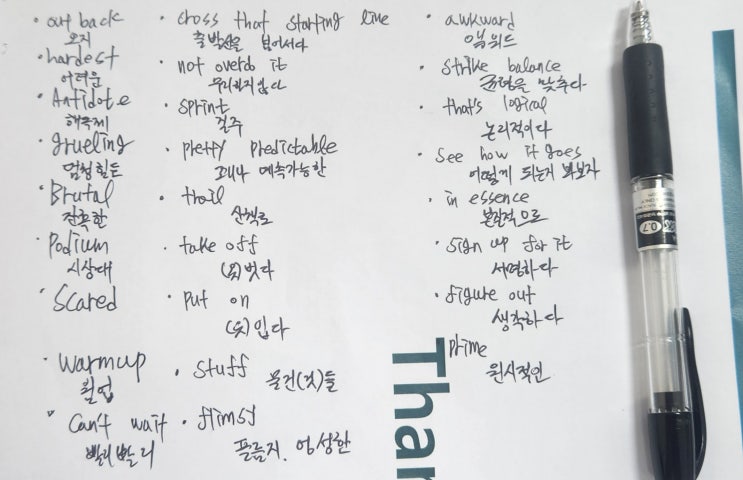 · out back
오지
· hardest
어려운
· Antidote
해독제
· grueling
엄청 힘든
· Brutal
잔혹한
· Podium
시상대
· Scared
· Warmup
웜업
· Can't wait
빨리빨리
· cross that starting line
출발선을 넘어서다
· not overdo it
무리하지 않다
· sprint
걸주
· pretty predictable
꽤나 예측가능한
· trail
산책로
· take off
(옷)벗다
· put on
(옷)입다
· stuff
물건(것)들
· flimsy
엉성한
· awkward
· strike balance
균형을 맞추다
· that's logical
논리적이다
· see how it goes
어떻게 되는지 봐보자
· in essence
본질적으로
· sign up for it
서명하다
· figure out
생각하다
prime
원시적인
Than
0.7